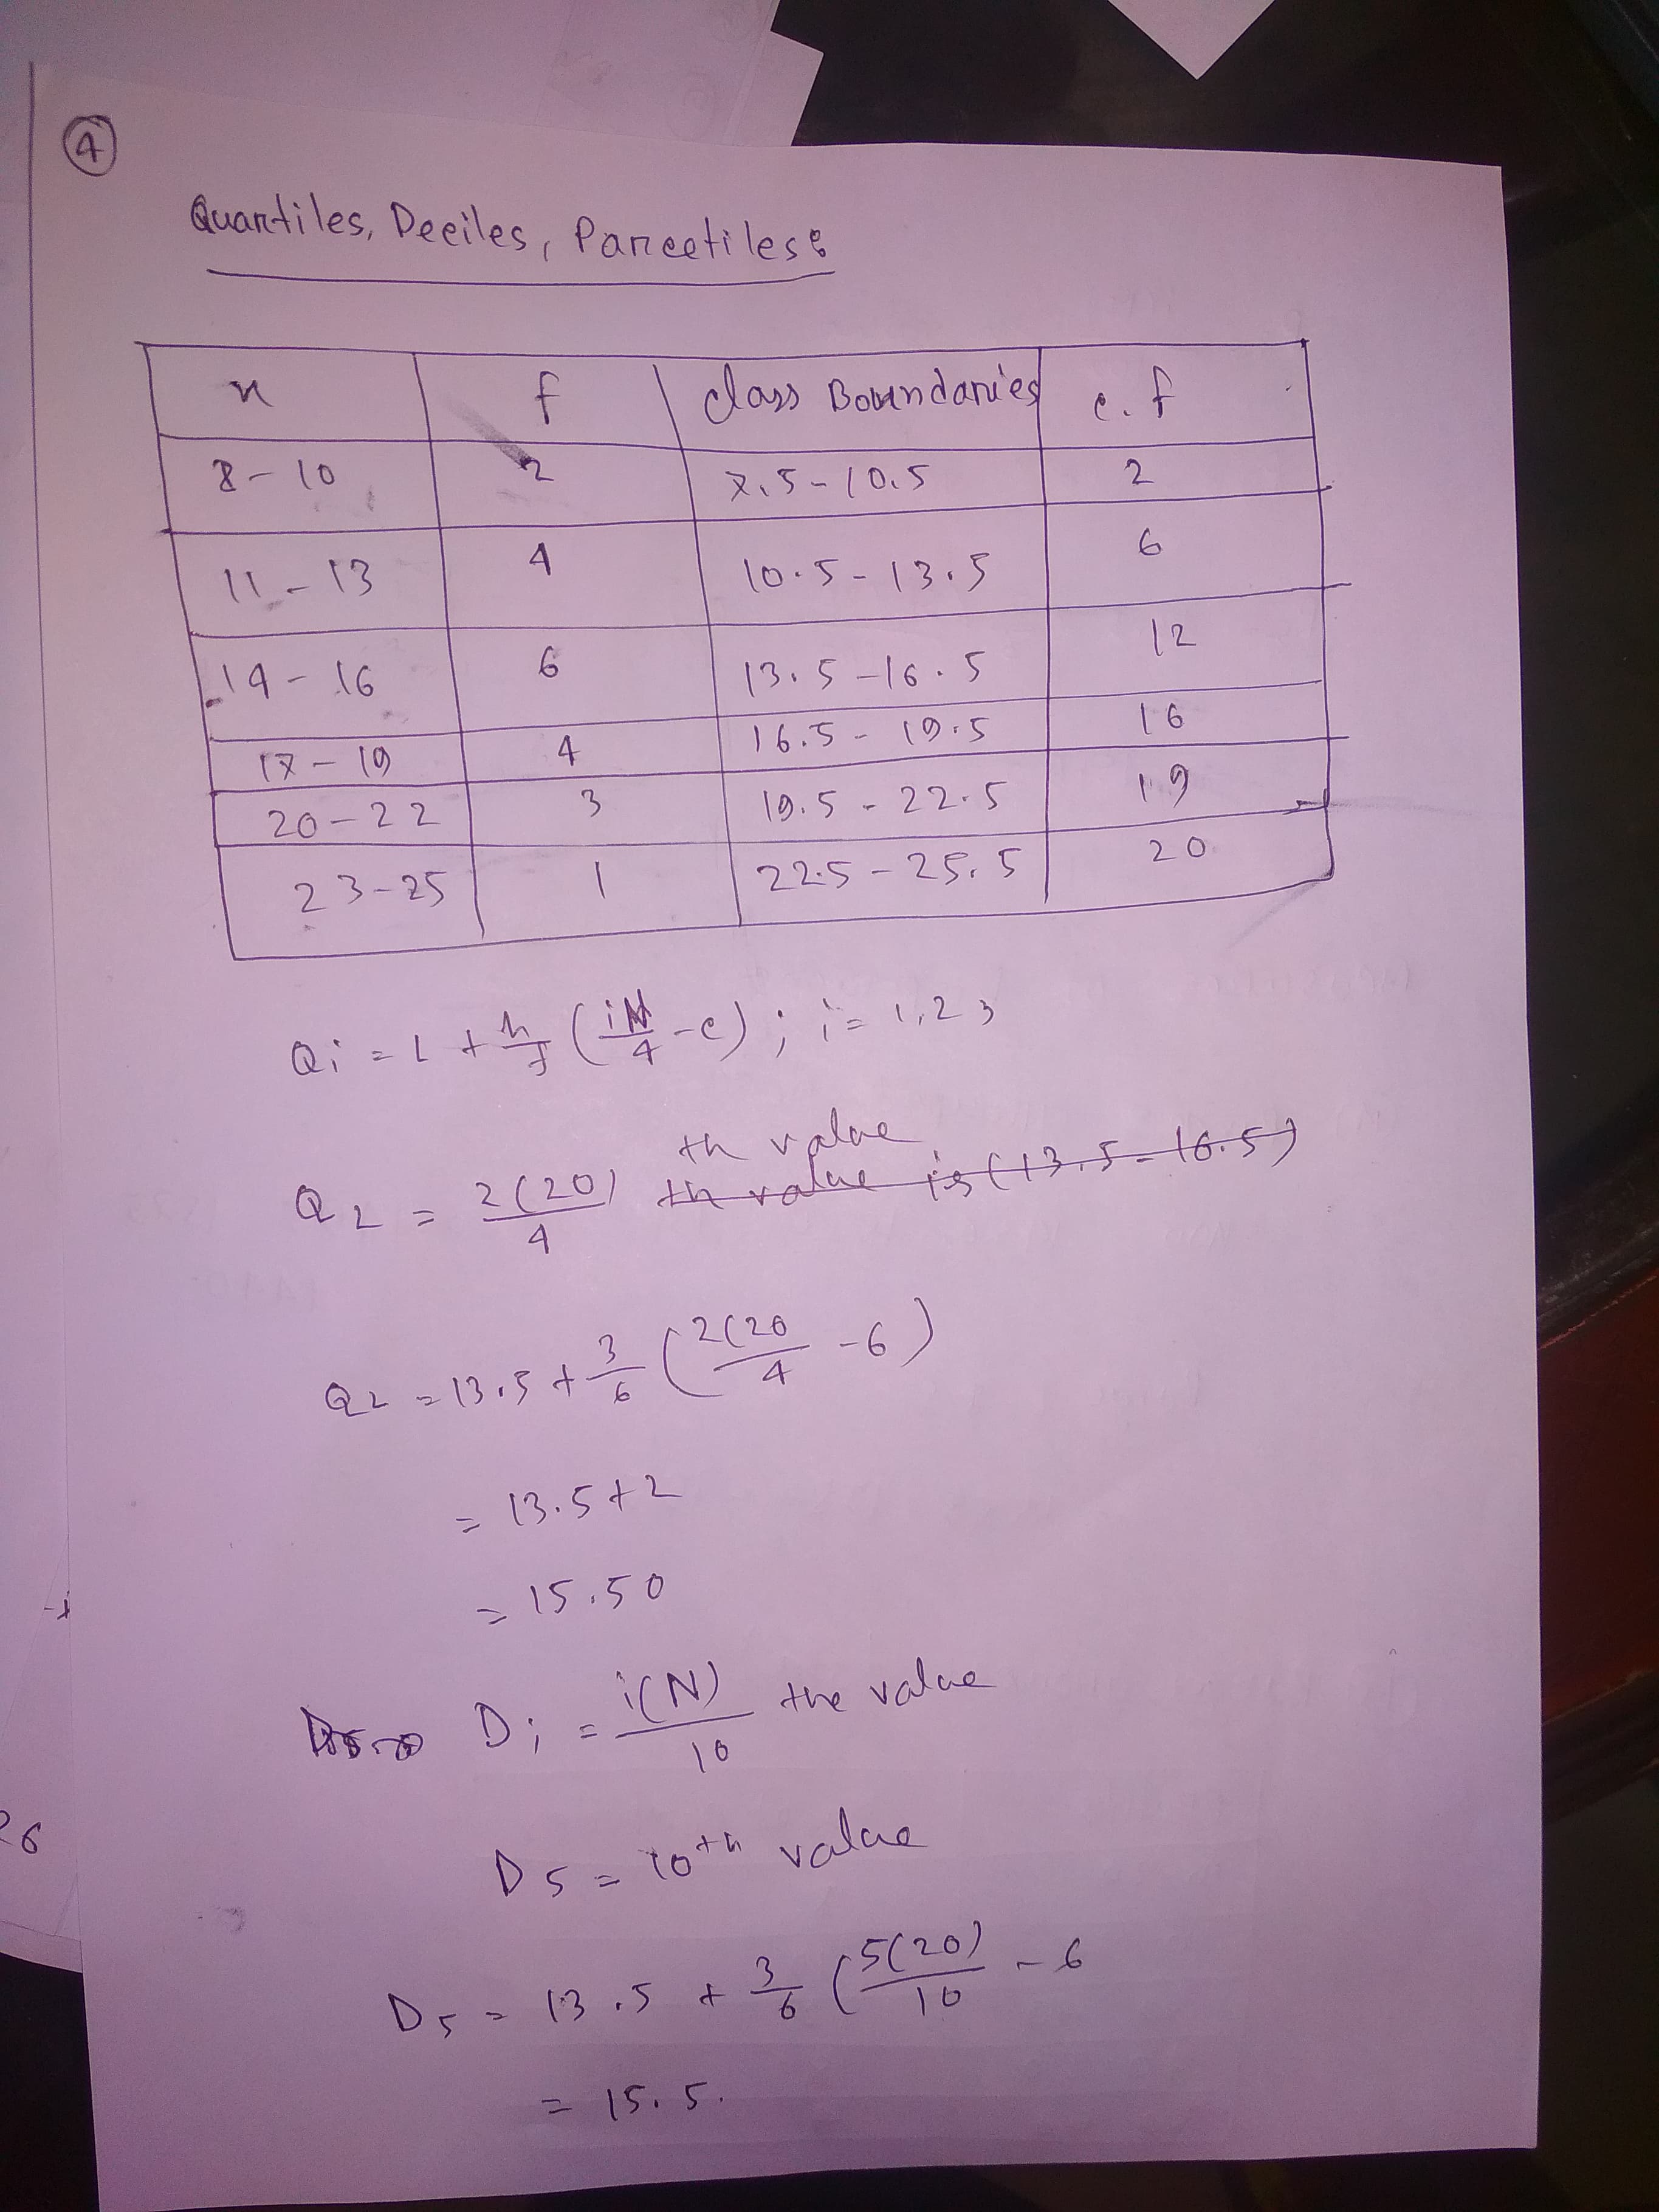 4
Quantiles, Deciles, Parcetiles:
x f class Boundaries c.f
8-10 2 7.5-10.5 2
11-13 4 10.5-13.5 6
14-16 6 13.5-16.5 12
17-19 4 16.5-19.5 16
20-22 3 19.5-22.5 19
23-25 1 22.5-25.5 20
Qi = L + h/f (iN/4 - c) ; i = 1,2 3
th value
Q2 = 2(20)/4 th value is (13.5-16.5)
Q2 = 13.5 + 3/6 (2(20/4 - 6)
= 13.5 + 2
= 15.50
Di = i(N)/10 the value
D5 = 10th value
26
D5 = 13.5 + 3/6 (5(20)/10 - 6
= 15.5.